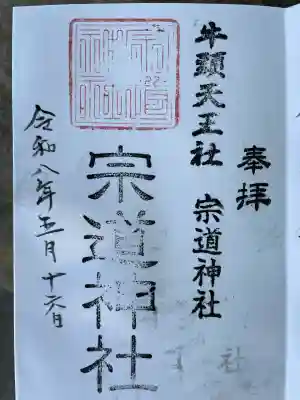 奉拝
牛頭天王社 宗道神社
宗道神社
令和八年五月十六日